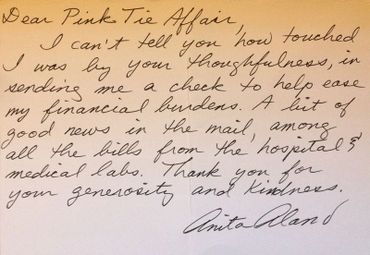 Dear Pink Tie Affair,
I can't tell you how touched
I was by your thoughtfulness, in
sending me a check to help ease
my financial burdens. A bit of
good news in the mail, among
all the bills from the hospital &
medical labs. Thank you for
your generosity and kindness.
Anita Aland